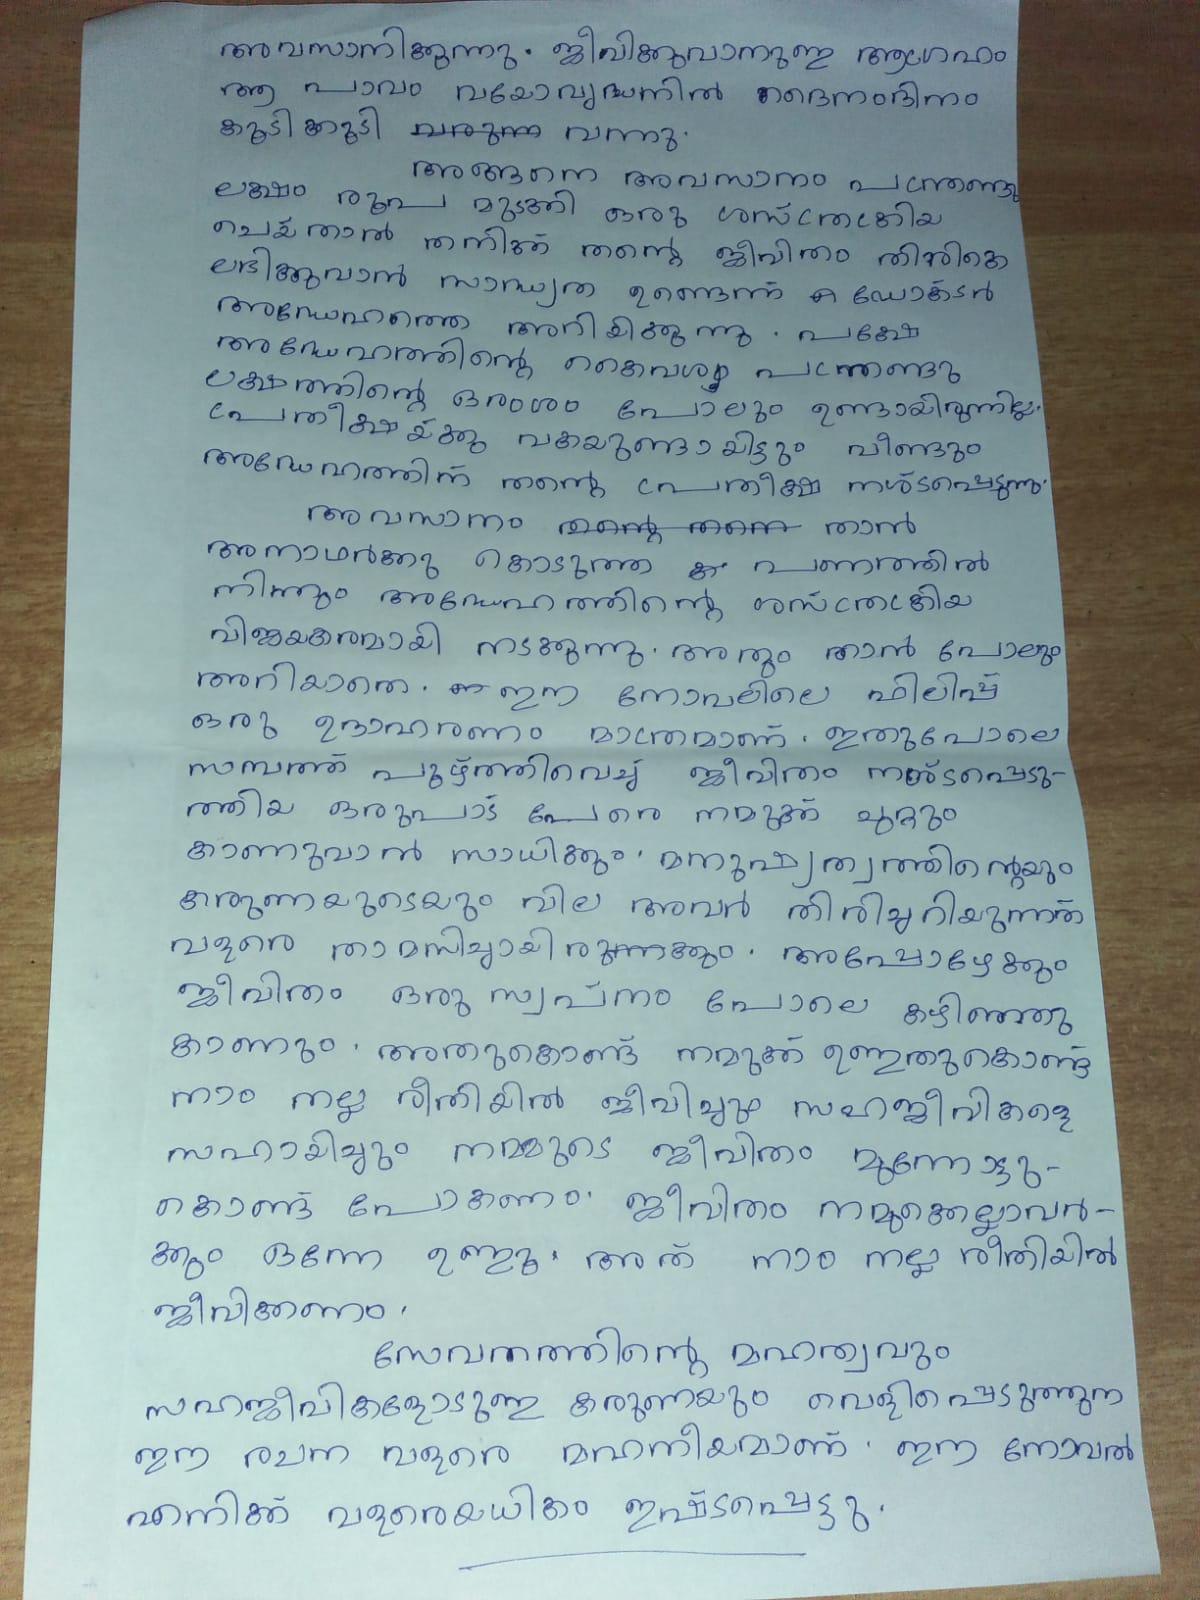 അവസാനിക്കുന്നു. ജീവിക്കുവാനുള്ള ആഗ്രഹം
ആ പാവം വയോവൃദ്ധനിൽ ദൈനംദിനം
കൂടിക്കൂടി വരുന്ന വന്നു.
അങ്ങനെ അവസാനം പന്ത്രണ്ടു
ലക്ഷം രൂപ മുടക്കി ഒരു ശസ്ത്രക്രിയ
ചെയ്താൽ തനിക്ക് തന്റെ ജീവിതം തിരികെ
ലഭിക്കുവാൻ സാദ്ധ്യത ഉണ്ടെന്ന് ഡോക്ടർ
അദ്ധേഹത്തെ അറിയിക്കുന്നു. പക്ഷേ
അദ്ധേഹത്തിന്റെ കൈവശം പന്ത്രണ്ടു
ലക്ഷത്തിന്റെ ഒരംശം പോലും ഉണ്ടായിരുന്നില്ല.
പ്രതീക്ഷയ്ക്കു വകയുണ്ടായിട്ടും വീണ്ടും
അദ്ധേഹത്തിന് തന്റെ പ്രതീക്ഷ നശ്ടപ്പെടുന്നു.
അവസാനം തന്റെ തന്നെ താൻ
അനാഥർക്കു കൊടുത്ത പണത്തിൽ
നിന്നും അദ്ധേഹത്തിന്റെ ശസ്ത്രക്രിയ
വിജയകരമായി നടക്കുന്നു. അതും താൻ പോലും
അറിയാതെ. ഈ നോവലിലെ ഫിലിപ്പ്
ഒരു ഉദാഹരണം മാത്രമാണ്. ഇതുപോലെ
സമ്പത്ത് പൂഴ്ത്തിവെച്ച് ജീവിതം നശ്ടപ്പെടു-
ത്തിയ ഒരുപാട് പേരെ നമുക്ക് ചുറ്റും
കാണുവാൻ സാധിക്കും. മനുഷ്യത്വത്തിന്റെയും
കരുണയുടെയും വില അവർ തിരിച്ചറിയുന്നത്
വളരെ താമസിച്ചായിരുന്നക്കും. അപ്പോഴേക്കും
ജീവിതം ഒരു സ്വപ്നം പോലെ കഴിഞ്ഞു
കാണും. അതുകൊണ്ട് നമുക്ക് ഉള്ളതുകൊണ്ട്
നാം നല്ല രീതിയിൽ ജീവിച്ചും സഹജീവികളെ
സഹായിച്ചും നമ്മുടെ ജീവിതം മുന്നോട്ടു-
കൊണ്ട് പോകണം. ജീവിതം നമുക്കെല്ലാവർ-
ക്കും ഒന്നേ ഉള്ളു. അത് നാം നല്ല രീതിയിൽ
ജീവിക്കണം.
സേവനത്തിന്റെ മഹത്വവും
സഹജീവികളോടുള്ള കരുണയും വെളിപ്പെടുത്തുന്ന
ഈ രചന വളരെ മഹനീയമാണ്. ഈ നോവൽ
എനിക്ക് വളരെയധികം ഇഷ്ടപ്പെട്ടു.